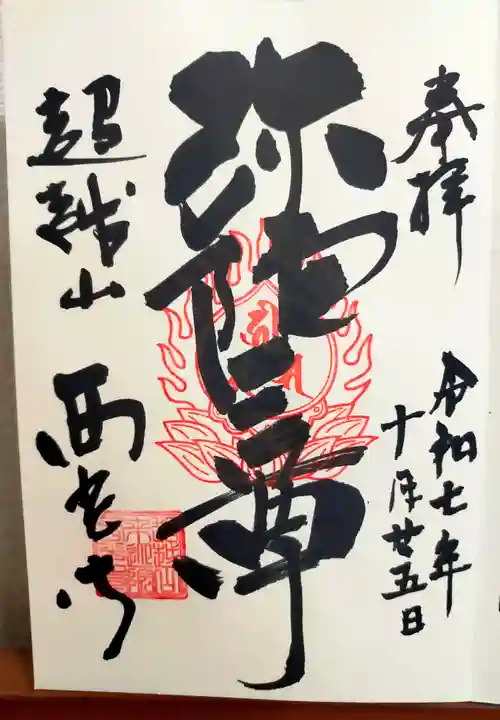 奉拝
令和七年
十月廿五日
弥陀三尊
超越山 西光寺